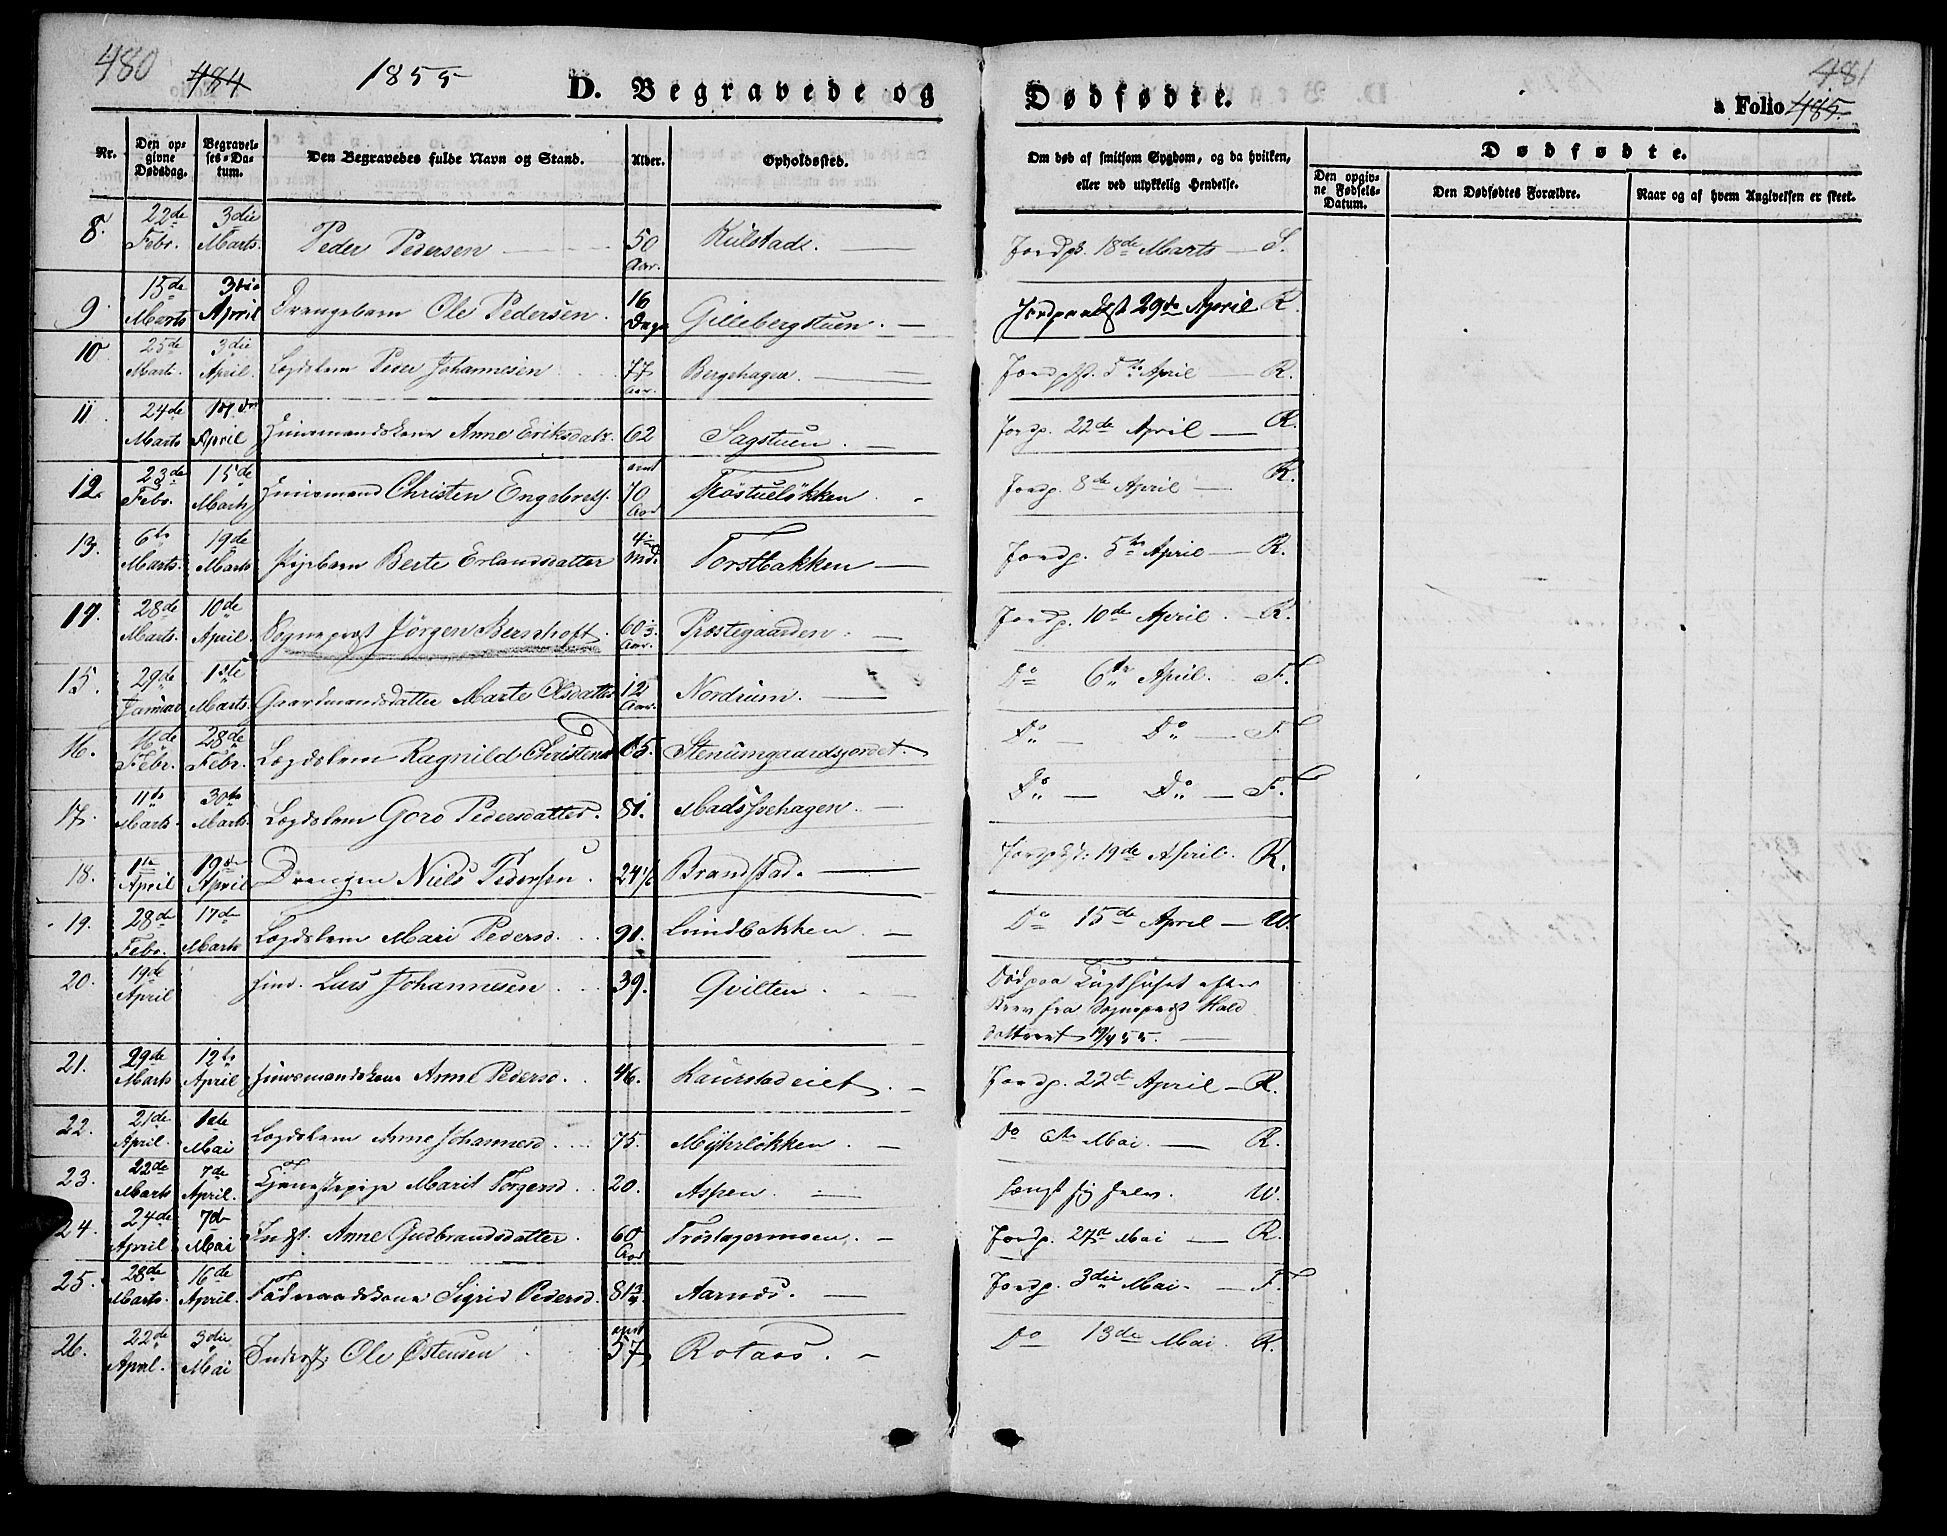 480 484 1855 D. Begravede og Dødfødte. a Folio 485 481
Nr. Den opgivne Dødsdag. Begravelses-Datum. Den Begravedes fulde Navn og Stand. Alder. Opholdssted. Om død af smitsom Sygdom, og da hvilken, eller ved ulykkelig Hendelse. Dødfødte.
Den opgivne Fødsels-Datum. Den Dødfødtes Forældre. Naar og af hvem Angivelsen er skeet.
8. 22de Febr. 3die Marts Peder Pedersen 50 Aar. Kulstad. Jordp. 18de Marts S.
9. 15de Marts 3die April Drengebarn Ole Pedersen. 16 Dage Gillebergstuen. Jordpaakst 29de April R.
10. 25de Marts 3die April. Lægdslem Peder Johannesen 77 Aar. Bergehagen. Jordpkst. 5te April R.
11. 24de Marts April Huusmandskone Anne Eriksdatr. 62 Sagstuen. Jordp. 22de April R.
12. 23de Febr. 15de Marts Huusmand Christen Engebrets. 70 Aar Jordp. 8de April R.
13. 6te Marts. 19de Marts Pigebarn Berte Erlandsdatter 4 Md. Torstbakken Jordp. 5te April R.
14. 28de Marts. 10de April. Sogneprest Jørgen Bernhoft. 60 Aar. Præstegaarden. Jordp. 10de April. R.
15. 29de Januar 1ste Marts. Gaardmandsdatter Marte Olsdatter 12 Aar. Nordrum. Do 6te April. F.
16. 16de Febr. 28de Febr. Lægdslem Ragnild Christensd 65. Stenumgaardsjordet. Do Do F.
17. 11te Marts. 30te Marts. Lægdslem Goro Pedersdatter. 81. Do Do F.
18. 1ste April 19de April Drengen Niels Pedersen. Brandstad. Jordpkst. 19de April. R.
19. 28de Febr. 17de Marts Lægdslem Mari Pedersd. 91. Lundbakken Do 15de April W.
20. 19de April Lars Johannesen 39. Qvilten. Død paa Tugthuset efter
Brev fra Sognepræst Hald
dateret 19/4 55.
21. 29de Marts 12te April Huusmandskone Anne Pedersd. 46. Kaurstadeiet. Jordp. 22de April R.
22. 21de April. 1ste Mai Lægdslem Anne Johannesd. 75. Myhrløkken. Do 6te Mai. R.
23. 22de Marts 7de April. Tjenestepige Marit Torgersd. 20. Aspen. hængt sig selv. W.
24. 24de April 7de Mai Indst. Anne Gudbrandsdatter. 60 Aar Trøstagermoen. Jordp. 27de Mai R.
25. 28de Marts. 16de April. Føderaadskone Sigrid Pedersd. Aarnes. Jordp. 3die Mai. F.
26. 22de April. 3die Mai Inderst. Ole Østensen 57 Rotaas. Do 13de Mai. R.